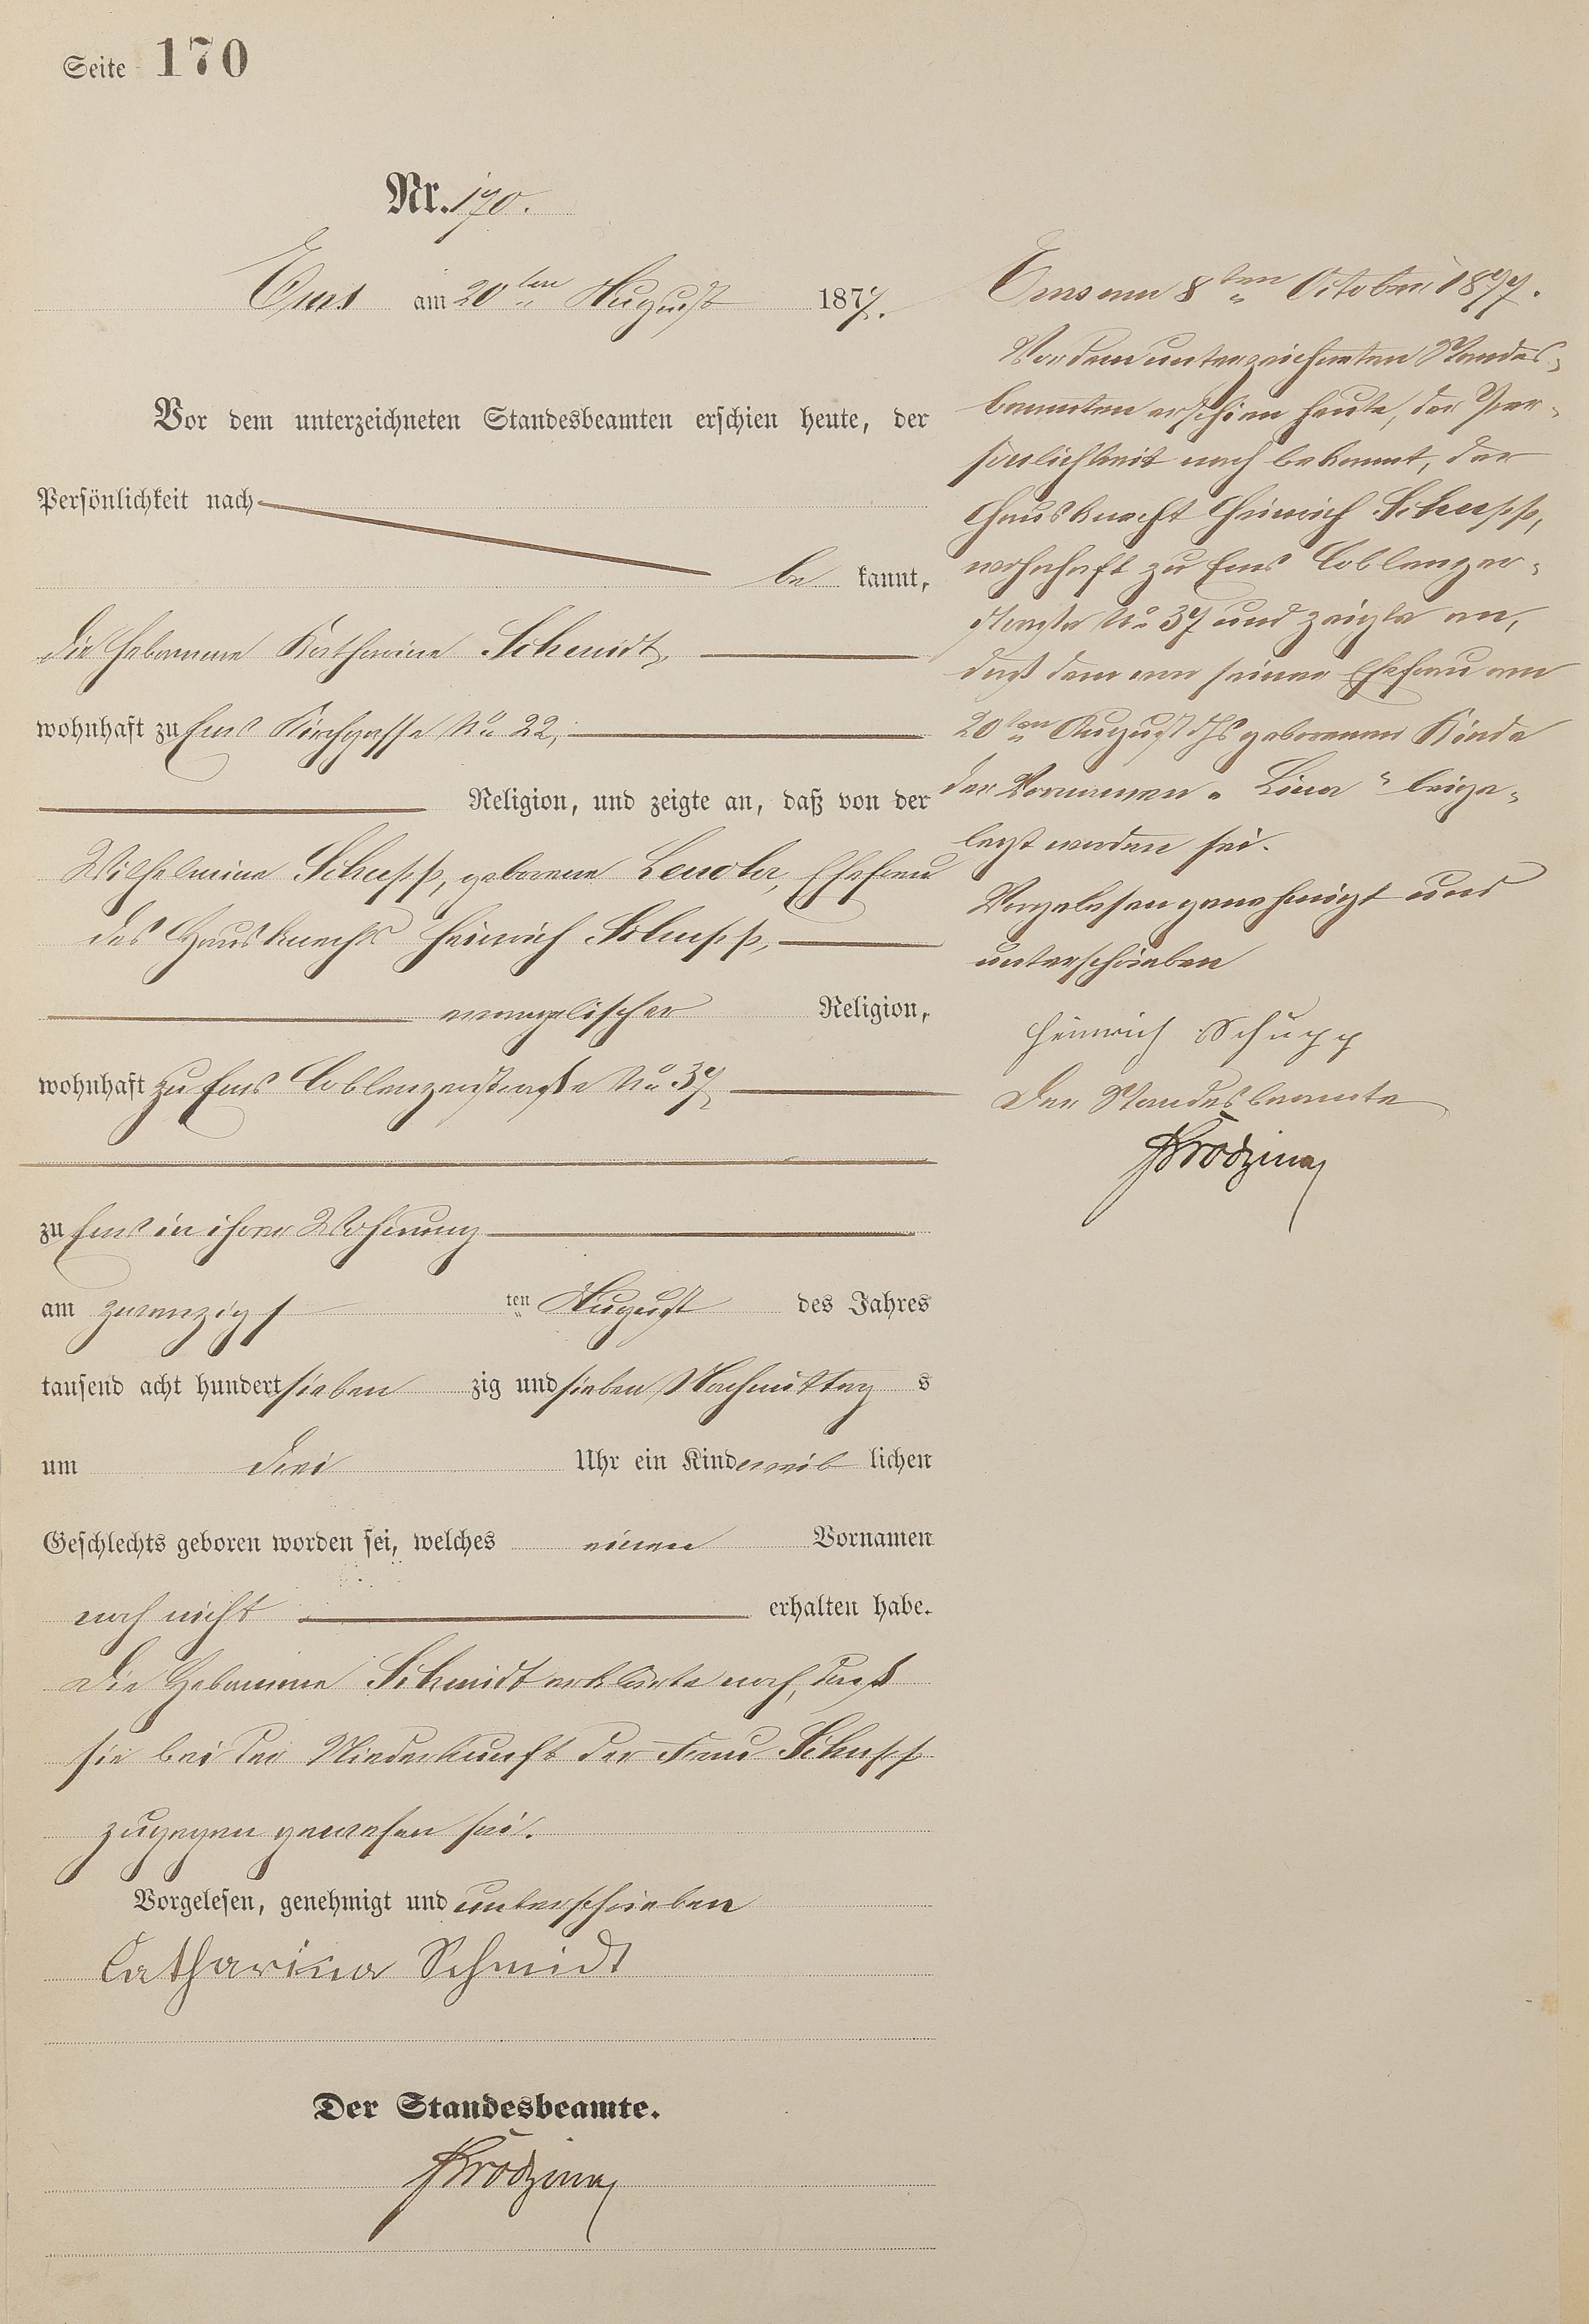 Seite 170
Nr. 170.
Ems am 20ten August 1877.
Vor dem unterzeichneten Standesbeamten erschien heute, der
Persönlichkeit nach
be kannt,
die Hebamme Katharine Schmidt,
wohnhaft zu Ems Kirchgasse No 22,
Religion, und zeigte an, daß von der
Wilhelmine Schupp, geborene Lenoha, Ehefrau
des Hausknechts Heinrich Schupp,
evangelischer Religion,
wohnhaft zu Ems Coblenzerstraße No 37,
zu Ems in ihrer Wohnung
am zwanzigs ten August des Jahres
tausend acht hundert sieben zig und sieben Nachmittag s
um drei Uhr ein Kind weib lichen
Geschlechts geboren worden sei, welches einen Vornamen
noch nicht erhalten habe.
Die Hebamme Schmidt erklärte noch, daß
sie bei der Niederkunft der Frau Schupp
zugegen gewesen sei.
Vorgelesen, genehmigt und unterschrieben
Catharina Schmidt
Der Standesbeamte.
Ems am 8ten October 1877.
Vor dem unterzeichneten Standes-
beamten erschien heute, der Per-
sönlichkeit nach bekannt, der
Hausknecht Heinrich Schupp,
wohnhaft zu Ems Coblenzer-
straße No 37 und zeigte an,
daß dem von seiner Ehefrau am
20ten August dJs geborenen Kinde
der Vornamen „Lina“ beige-
legt worden sei.
Vorgelesen genehmigt und
unterschrieben
Heinrich Schupp
Der Standesbeamte